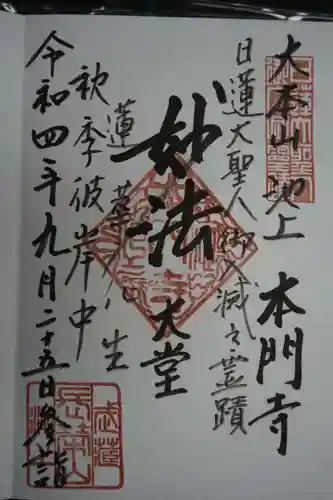 大本山池上 本門寺
日蓮大聖人御入滅之霊蹟
妙法
大堂
蓮華八生
秋季彼岸中
令和四年九月二十五日参詣